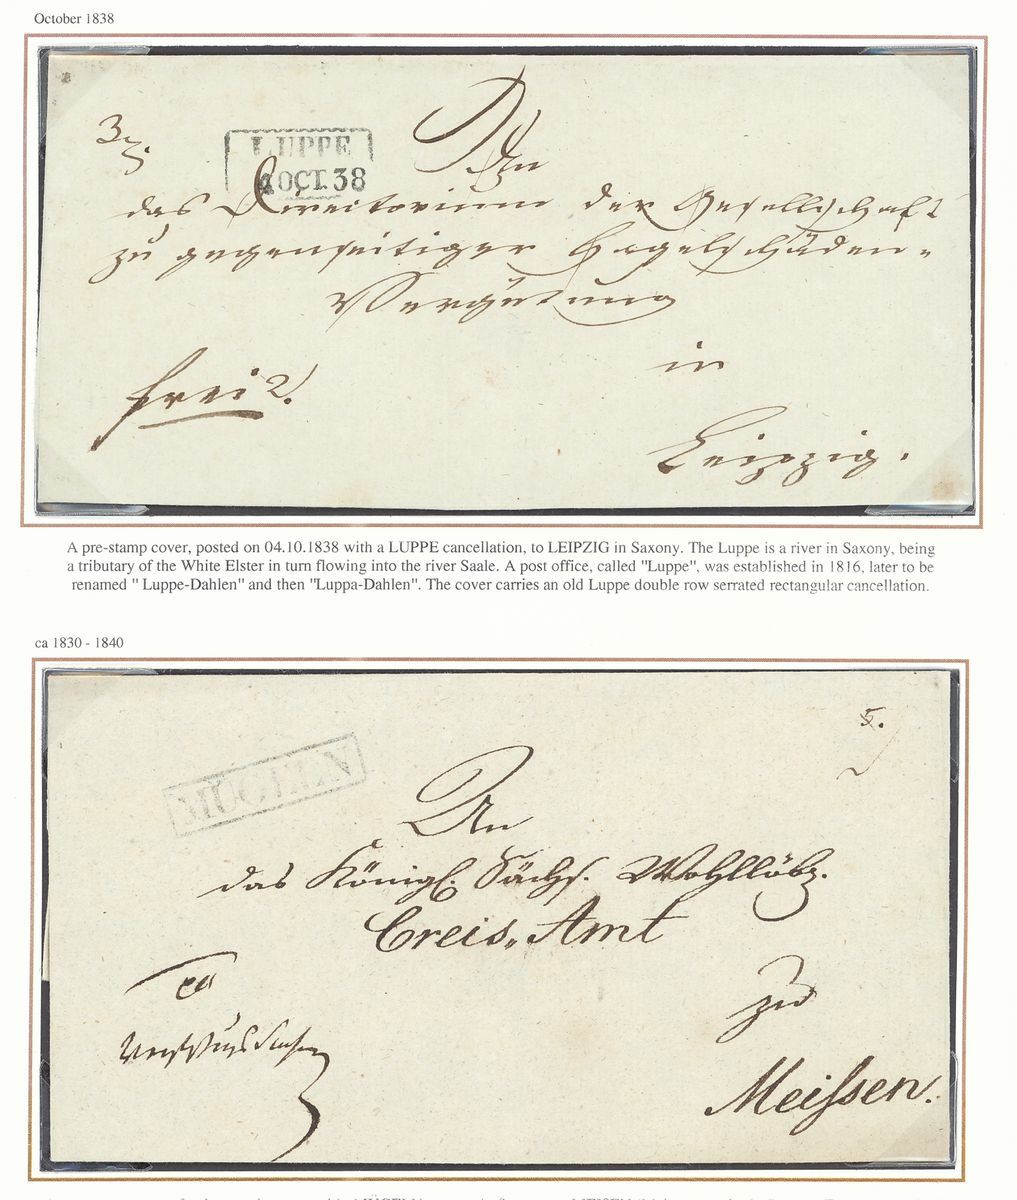 October 1838
3
LUPPE
4 OCT. 38
An
das Directorium der Gesellschaft
zu gegenseitiger Hagelschäden-
Vergütung
in
frei 2.
Leipzig.
A pre-stamp cover, posted on 04.10.1838 with a LUPPE cancellation, to LEIPZIG in Saxony. The Luppe is a river in Saxony, being
a tributary of the White Elster in turn flowing into the river Saale. A post office, called "Luppe", was established in 1816, later to be
renamed " Luppe-Dahlen" and then "Luppa-Dahlen". The cover carries an old Luppe double row serrated rectangular cancellation.
ca 1830 - 1840
5.
MÜGELN
An
das Königl. Sächs. Wohllöbl.
Creis-Amt
zu
Meissen.